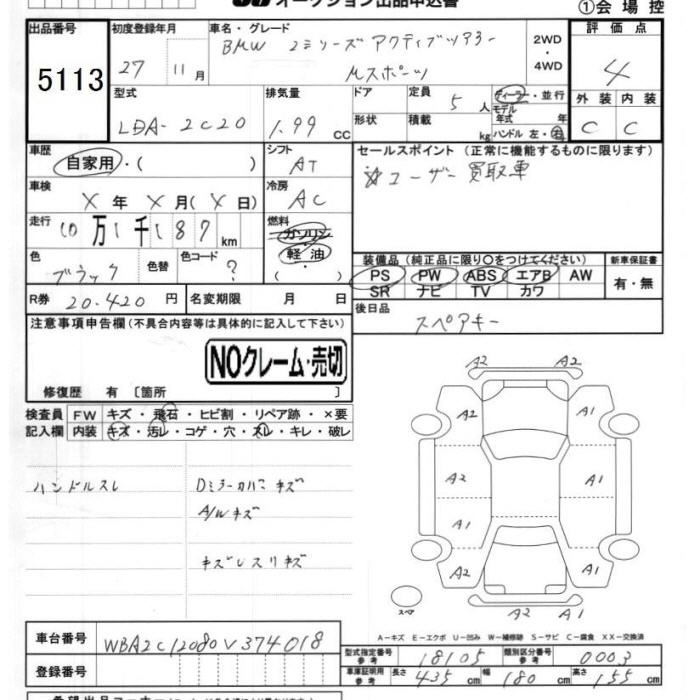 オークション出品申込書
①会場控
出品番号 初度登録年月 車名・グレード 評価点
5113 27 11月 BMW 2シリーズ アクティブツアラー 2WD・4WD 4
Mスポーツ
型式 排気量 ドア 定員 5人 ディーラー・並行 外装 内装
LDA-2C20 1.99 cc 形状 積載 kg モデル年式 年 ハンドル 左・右 C C
車歴 自家用・( ) シフト AT セールスポイント (正常に機能するものに限ります)
☆ユーザー買取車
車検 X年 X月(X日) 冷房 AC
走行 10万1千187km 燃料 ガソリン 軽油 ( )
色 ブラック 色替 色コード ? 装備品 (純正品に限り○をつけてください) 新車保証書
PS PW ABS エアB AW 有・無
SR ナビ TV カワ
R券 20.420円 名変期限 月 日 後日品
スペアキー
注意事項申告欄(不具合内容等は具体的に記入して下さい)
NOクレーム・売切
修復歴 有 〔箇所 〕
検査員 FW キズ・飛石・ヒビ割・リペア跡・×要
記入欄 内装 キズ・汚レ・コゲ・穴・スレ・キレ・破レ
ハンドルスレ Dミラーカバーキズ
A/Wキズ
A2 A2
A2 A1
A2 A1
A1
A2 A1
A2 A2
スペア
A-キズ E-エクボ U-凹み W-補修跡 S-サビ C-腐食 XX-交換済
車台番号 WBA2C12080V374018
型式指定番号 参考 18105 類別区分番号 参考 0003
登録番号 車庫証明用 参考 長さ 435cm 幅 180cm 高さ 155cm